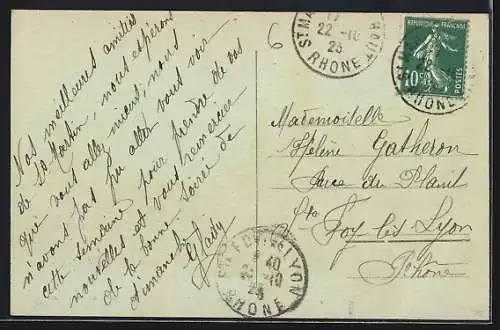 Nos meilleures amitiés
de St Martin, nous espérons
que vous allez mieux; nous
n'avons pas pu aller vous voir
cette semaine pour prendre de vos
nouvelles et vous remercier
de la bonne soirée de
dimanche
6
ST MA HAUT
22-10
23
RHONE
REPUBLIQUE FRANÇAISE
10c
POSTES
RHONE
Mademoiselle
Hélène Gatheron
Place du Planil
Ste Foy-lès-Lyon
Rhône
STE FOY LYON
40
23-10
23
RHONE